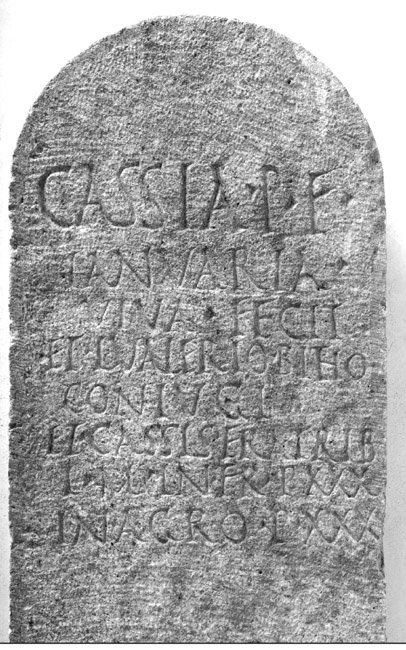 CASSIA·P·F·
IANVARIA·
VIVA·FECIT
ET·L·VALERIO BITHO
CONIVGI
ET·CASSI
IN·FR·P·XXX
IN AGRO·P·XXX